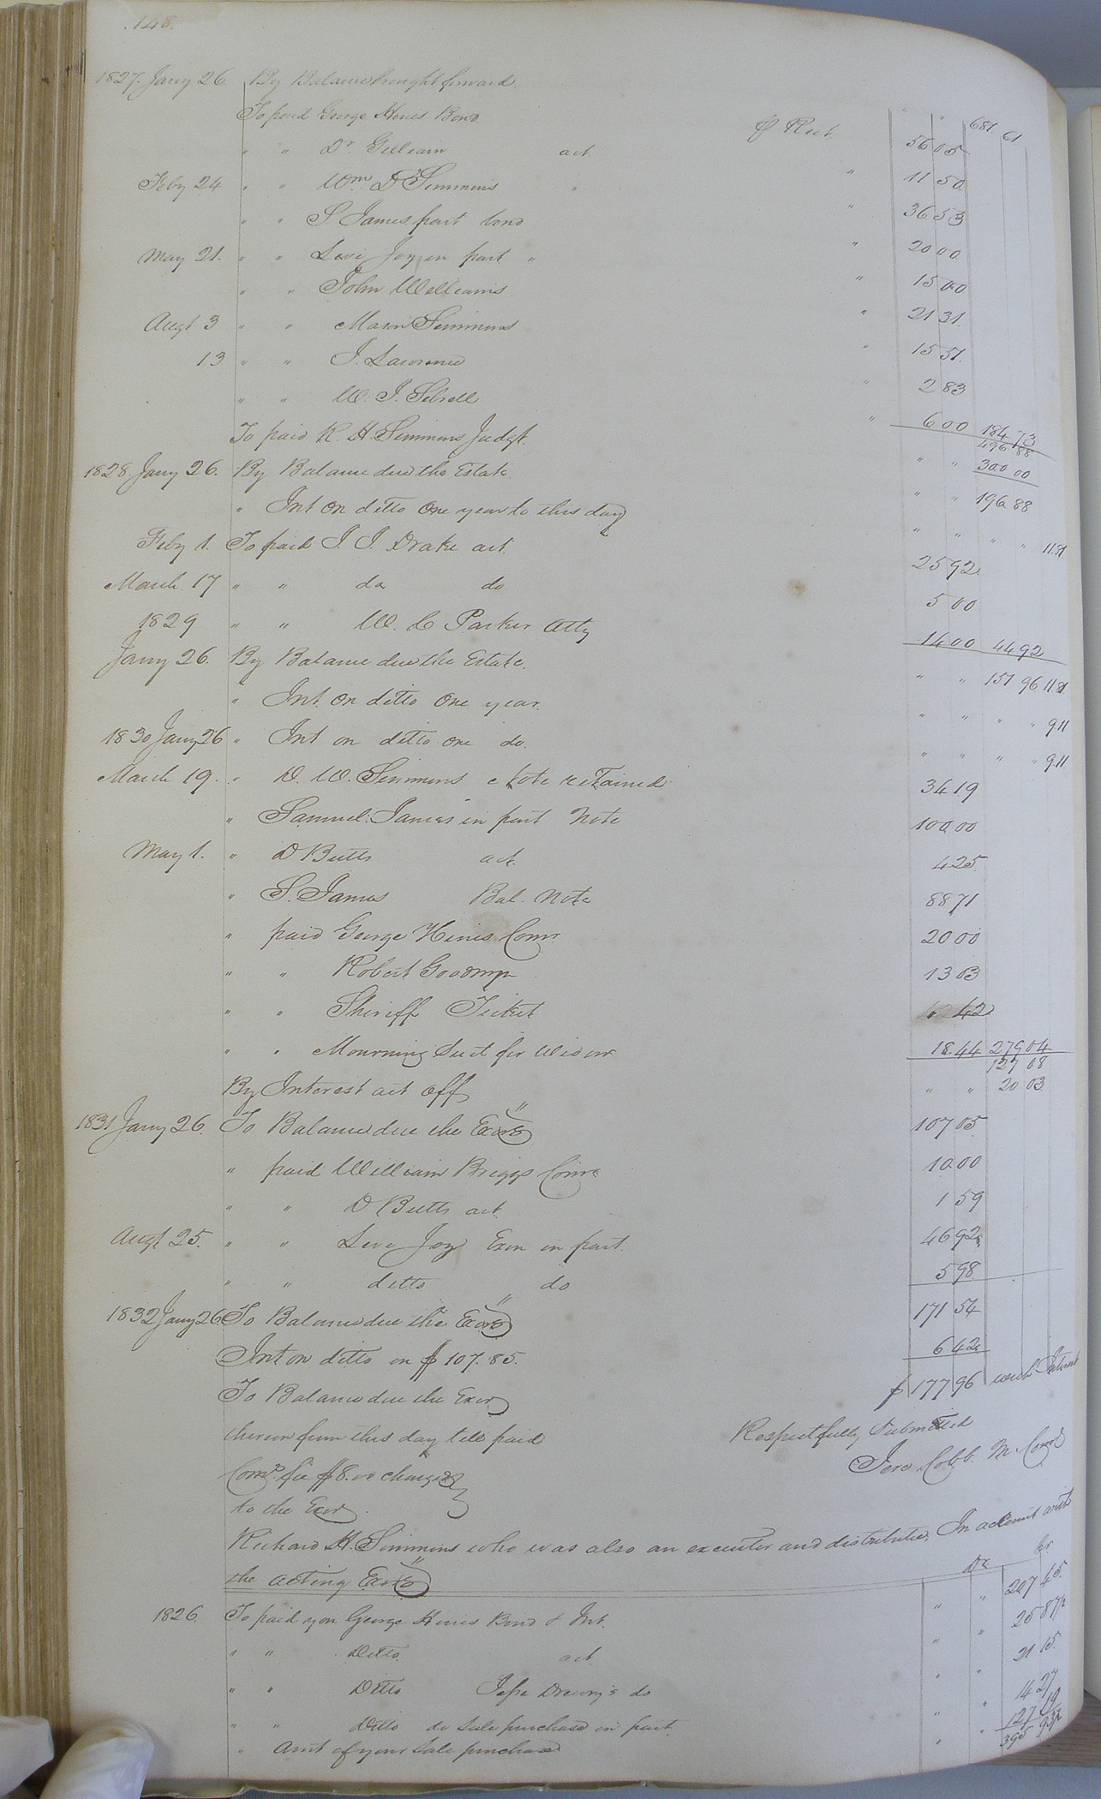 148.
1827. Jany 26. By Balance brought forward " " 681 61
To paid George Hines Bond pr Rect 56 05
" " Dr. Gilliam act " 11 50
Feby 24 " " Wm D Simmons " " 36 53
" " S James part bond " 20 00
May 21. " " Levi Joy in part " " 15 00
" " John Williams " 21 31
Augt 3 " " Mason Simmons " 15 51
13 " " J. Lawrence " 2 83
" " W. J. Sebrell " 6 00 184 73
To paid R. H. Simmons Judgt. 496 88
300 00
1828 Jany 26. By Balance due the Estate " " 196 88
" Int on ditto one year to this day " " " " 11 81
Feby 1. To paid J. J. Drake act. 25 92
March 17 " " do do 5 00
1829 " " W. C Parker Atty 14 00 44 92
Jany 26. By Balance due the Estate. " " 151 96 11 81
" Int. on ditto one year. " " " " 9 11
1830 Jany 26 " Int on ditto one do. " " " " 9 11
March 19. " D. W. Simmons Note retained 34 19
" Samuel James in part Note 100 00
May 1. " D Butts act. 4 25
" S. James Bal. Note 88 71
" paid George Hines Comr 20 00
" " Robert Goodwyn 13 03
" " Sheriff Ticket 42
" " Mourning Suit for Widow 18.44 279 04
127 08
By Interest act off " " 20 03
1831 Jany 26. To Balance due the Exor 107 05
" paid William Briggs Comr 10 00
" " D Butts act. 1 59
Augt 25. " " Levi Joy Exon in part. 46 92
" " ditto do 5 98
1832 Jany 26 To Balance due the Exor 171 54
Int on ditto on $107.85. 6 42
To Balance due the Exor $177 96 with Interest
thereon from this day till paid Respectfully Submitted
Comr. fee $8.00 charged Jere. Cobb. M. Comr
to the Exor.
Richard H. Simmons who was also an executor and distributee, In account with
the acting Exor Dr Cr
1826 To paid you George Hines Bond & Int. " " 207 45.
" " Ditto act " " 25 87½
" " Ditto Jesse Drewry's do " " 21 15.
" " Ditto do Sale purchase in part. " " 14 27
" Amt of your Sale purchase " " 127 19
395 93½